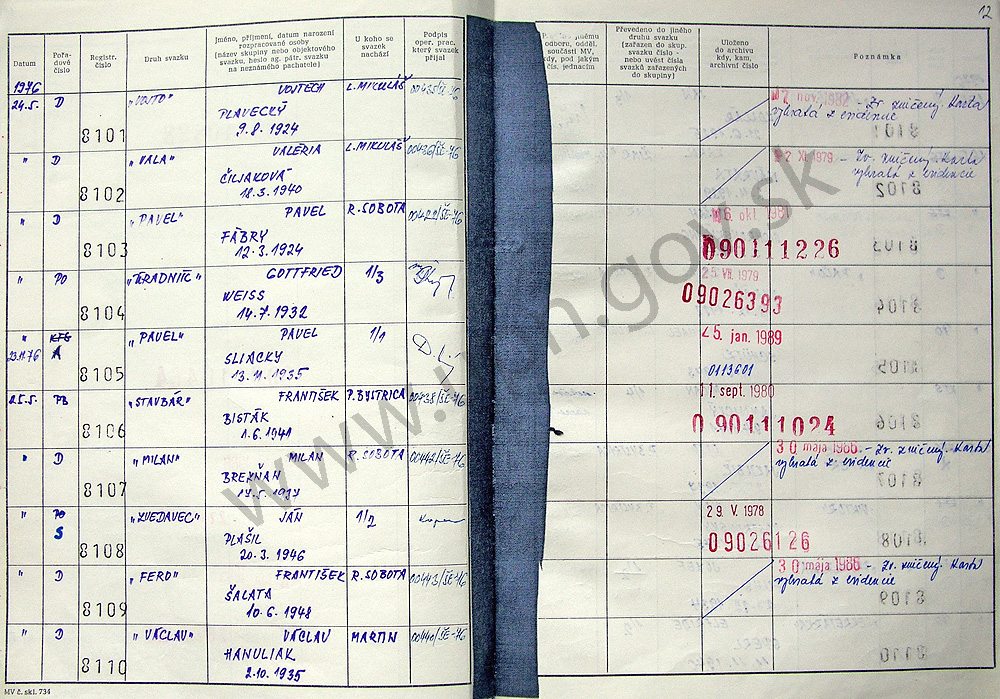 12
Datum
Pořadové číslo
Registr. číslo
Druh svazku
Jméno, příjmení, datum narození rozpracované osoby (název skupiny nebo objektového svazku, heslo ag. pátr. svazku na neznámého pachatele)
U koho se svazek nachází
Podpis oper. prac. který svazek přijal
Převedeno do jiného druhu svazku (zařazen do skup. svazku číslo - nebo uvést čísla svazků zařazených do skupiny)
Uloženo do archivu kdy, kam, archivní číslo
Poznámka
1976
24.5. D 8101 "VOJTO" VOJTECH L.MIKULÁŠ 00435/ŠE-76
PLAVECKÝ
9.8.1924
" D 8102 "VALA" VALÉRIA L.MIKULÁŠ 00436/ŠE-76
ČILJAKOVÁ
18.3.1940
" D 8103 "PAVEL" PAVEL R.SOBOTA
FÁBRY
12.3.1924
" PO 8104 GOTTFRIED 1/3
WEISS
14.7.1932
" 8105 "PAVEL" PAVEL 1/1
23.11.76 A SLIACKY
13.11.1935
25.5. PB 8106 "STAVBÁR" FRANTIŠEK P.BYSTRICA 00438/ŠE-76
BISTÁK
1.6.1941
" D 8107 "MILAN" MILAN R.SOBOTA 00442/ŠE-76
" S 8108 "ZVEDAVEC" JÁN 1/2
PLAŠIL
20.3.1946
" D 8109 "FERO" FRANTIŠEK R.SOBOTA 00443/ŠE-76
ŠALATA
10.6.1948
" D 8110 "VÁCLAV" VÁCLAV MARTIN 00440/ŠE-76
HANULIAK
2.10.1935
nov. 1982 - Zv. zničený. Karta
vybratá z evidencie
2 XI. 1979 - Zv. zničený. Karta
vybratá z evidencie
6 okt. 1981
090111226
25. VII. 1979
09026393
25. jan. 1989
0113601
11. sept. 1980
090111024
30 mája 1986 - Zv. zničený. Karta
vybratá z evidencie
29. V. 1978
09026126
30 mája 1986 - Zv. zničený. Karta
vybratá z evidencie
MV č. skl. 734